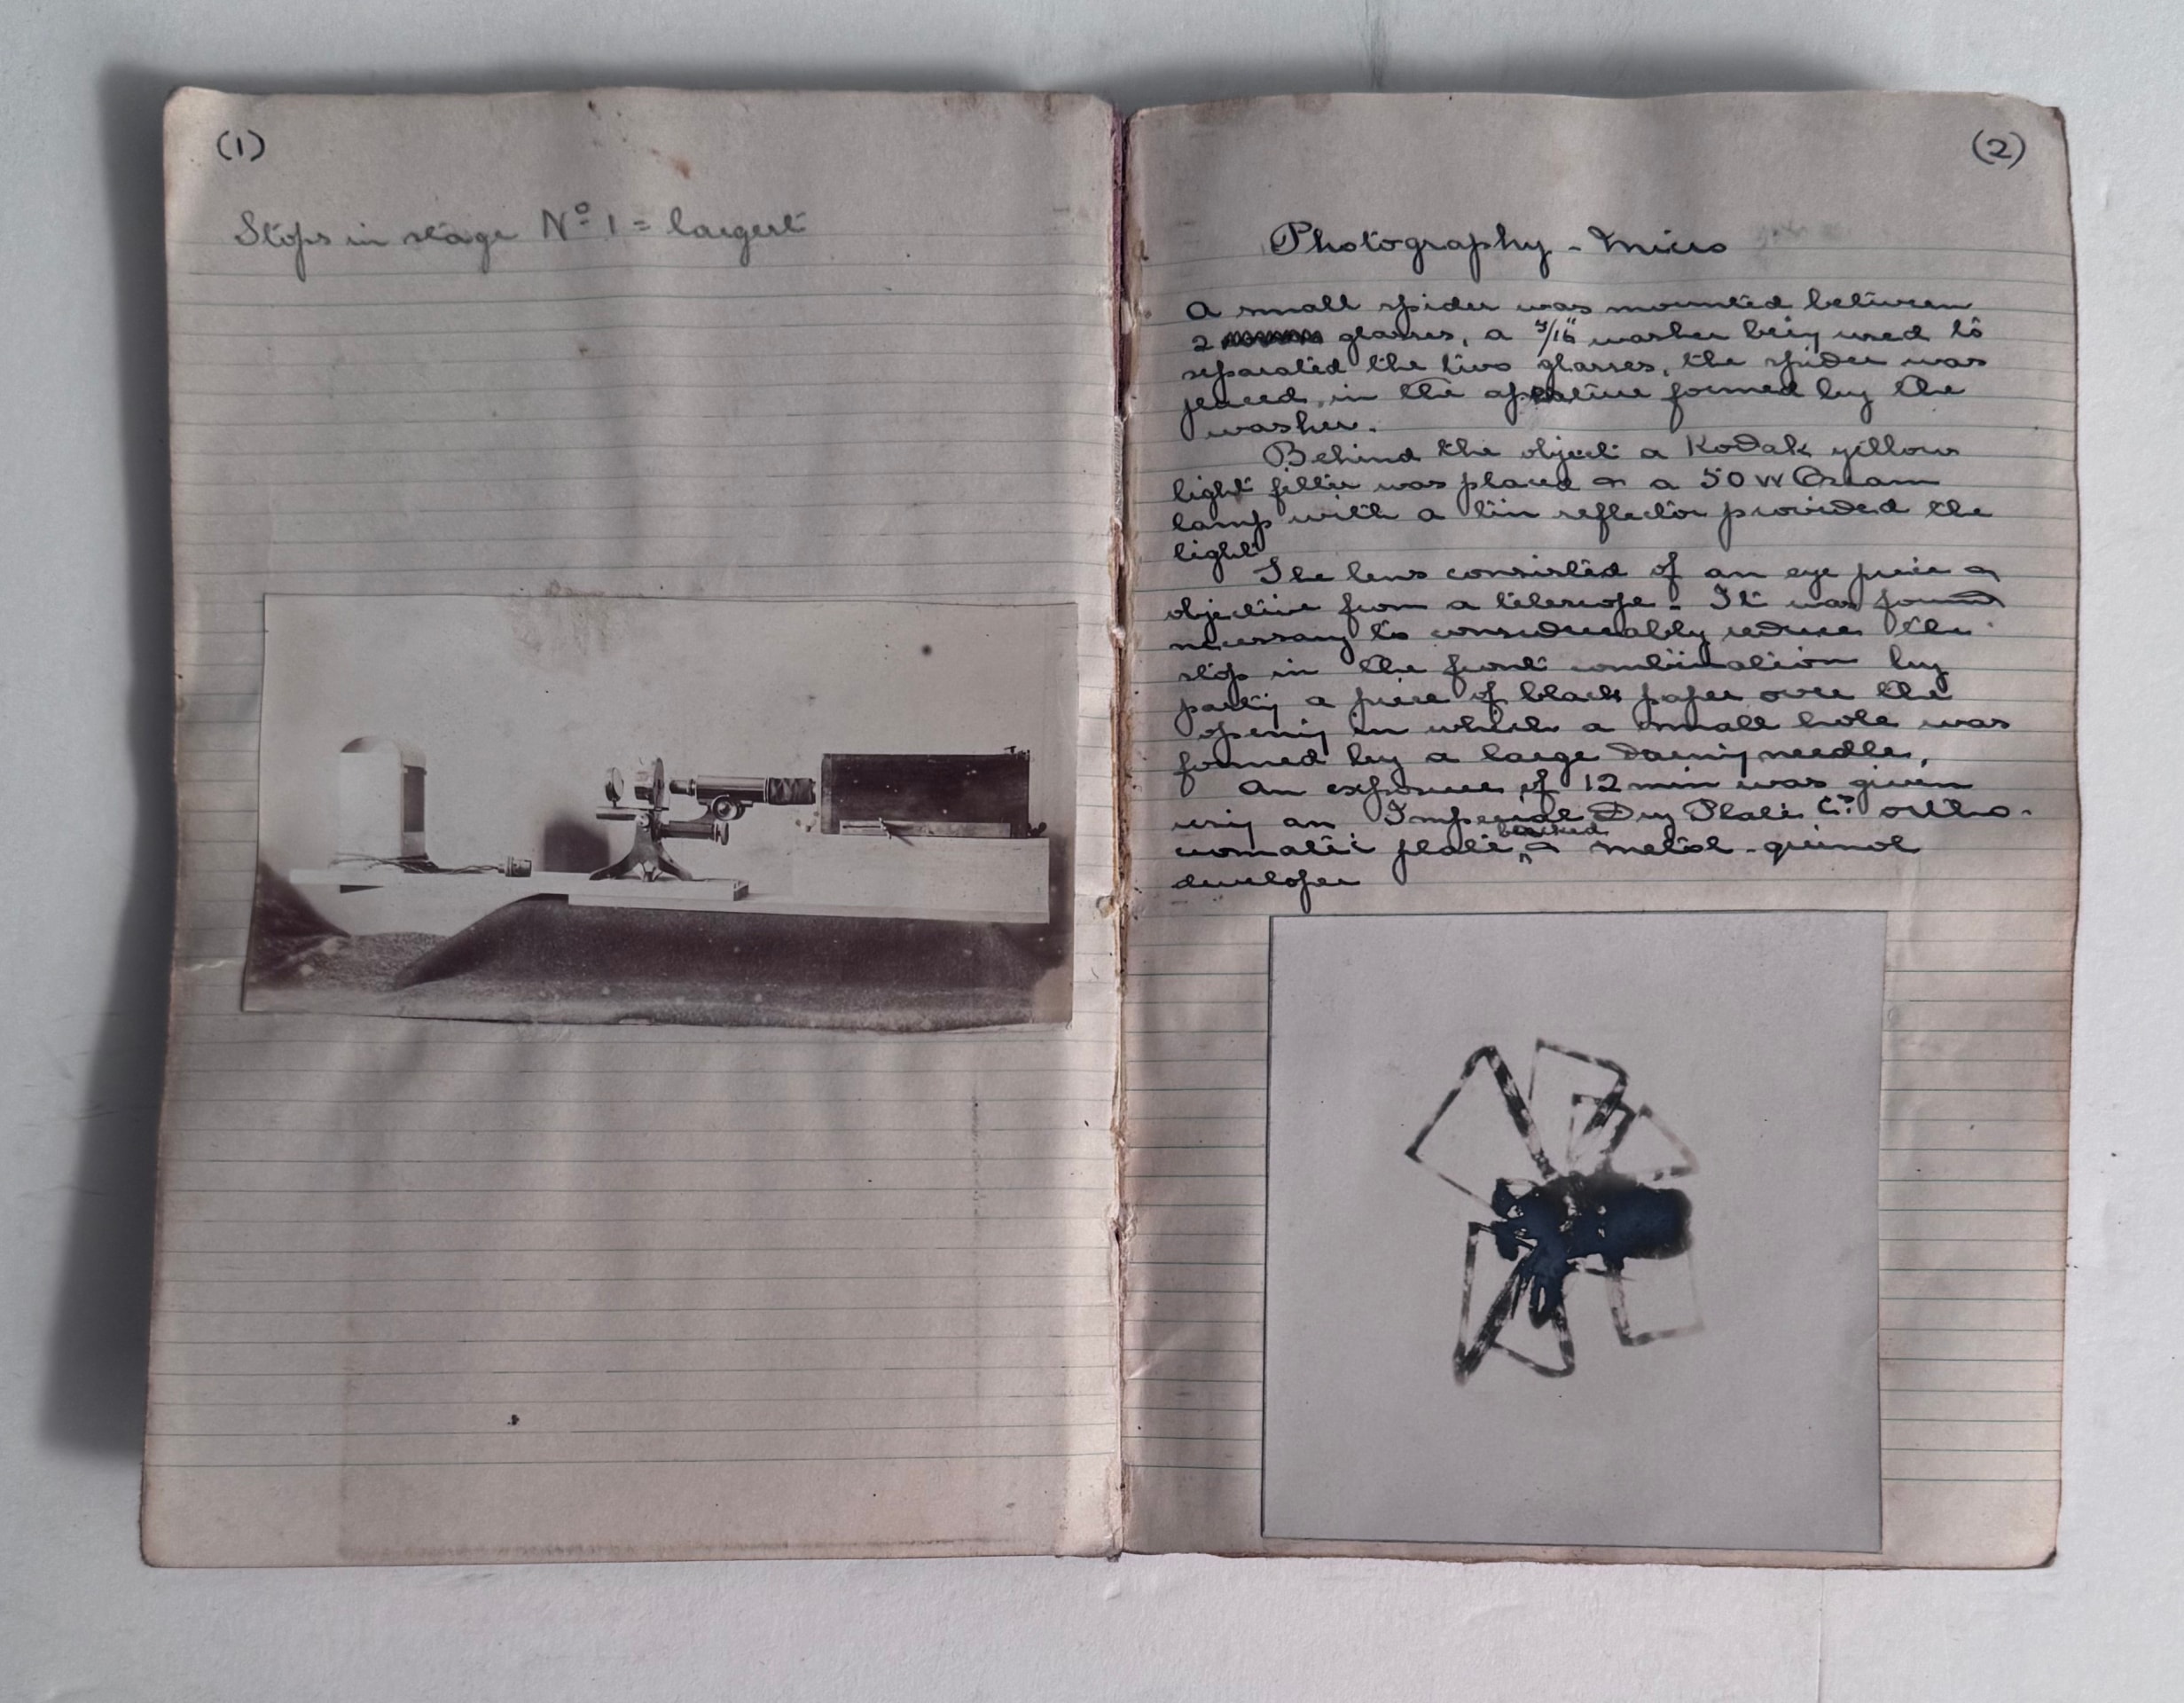 (1)
Stops in stage Nº 1 = largest
(2)
Photography - Micro
A small spider was mounted between
2 glasses, a 3/16" washer being used to
separated the two glasses, the spider was
placed in the aperature formed by the
washer.
Behind the object a Kodak yellow
light filter was placed & a 50 W Osram
lamp with a tin reflector provided the
light
The lens consisted of an eye piece &
objective from a telescope - It was found
necessary to considerably reduce the
stop in the front combination by
a piece of black paper over the
opening in which a small hole was
formed by a large darning needle.
An exposure of 12 min was given
using an Imperial Dry Plate Co. ortho-
cromatic plate, backed & metol-quinol
developer